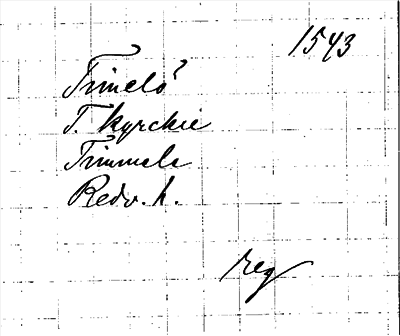 1543
Timelö
T. kyrckie
Timmele
Redv. h.
reg